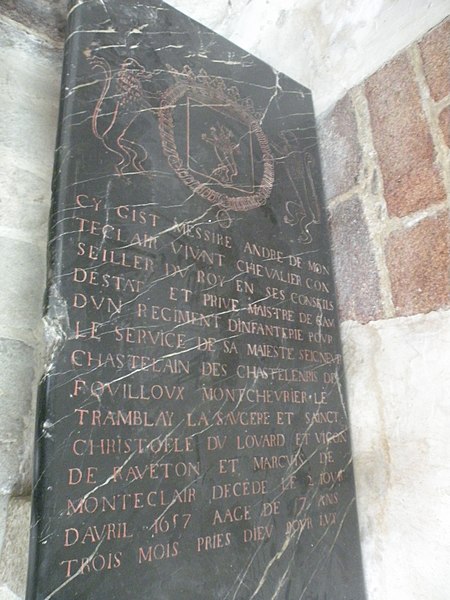 CY GIST MESSIRE ANDRE DE MON
TECLAIR VIVANT CHEVALIER CON
SEILLER DU ROY EN SES CONSEILS
DESTAT ET PRIVE MAISTRE DE CAM
DVN REGIMENT DINFANTERIE POVR
LE SERVICE DE SA MAIESTE SEIGNEVR
CHASTELAIN DES CHASTELENIES DE
ROVILLOVX MONTCHEVRIER LE
TRAMBLAY LA SAVCERE ET SAINCT
CHRISTOFLE DV LOVARD ET
DE RAVETON ET MARCVIS DE
MONTECLAIR DECEDE LE IOVR
DAVRIL 1657 AAGE DE ANS
TROIS MOIS PRIES DIEV POVR LVY